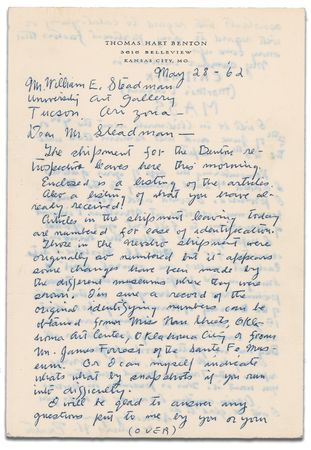 THOMAS HART BENTON
3616 BELLEVIEW
KANSAS CITY, MO.
May 28 - '62
Mr. William E. Steadman
University Art Gallery
Tucson Arizona —
Dear Mr. Steadman —
The shipment for the Benton re-
trospective leaves here this morning.
Enclosed is a listing of the articles.
Also a listing of what you have al-
ready received!
Articles in the shipment leaving today
are numbered for ease of identification.
Those in the previous shipment were
originally so numbered but it appears
some changes have been made by
the different museums where they were
shown. I'm sure a record of the
original identifying numbers can be
obtained from Miss Nan Sheets, Okla-
homa Art Center, Oklahoma City or from
Mr. James of the Santa Fe Mus-
eum. Or I can myself indicate
whats what by snapshots if you run
into difficulty.
I will be glad to answer any
questions put to me by you or your
(OVER)